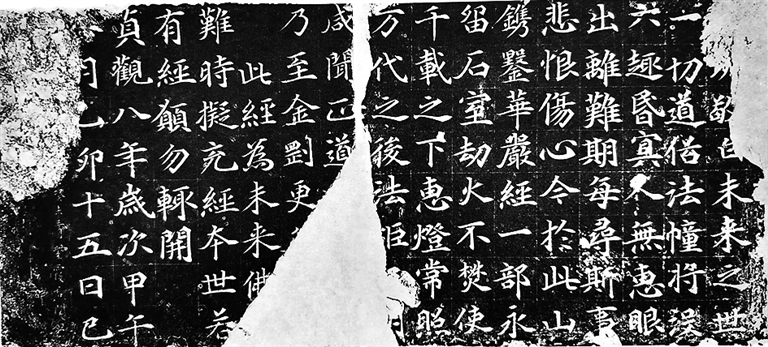 敬白未来之世
一切道俗法幢将没
六趣昏冥人無惠眼
出離難期每尋斯事
悲恨傷心今於此山
鐫鑿華嚴經一部永
留石室劫火不焚使
千載之下惠燈常照
万代之後法炬明
咸聞正道
乃至金剛更
此經為未来佛
難時擬充經本世若
有經願勿輙開
貞觀八年歲次甲午
月乙卯十五日己